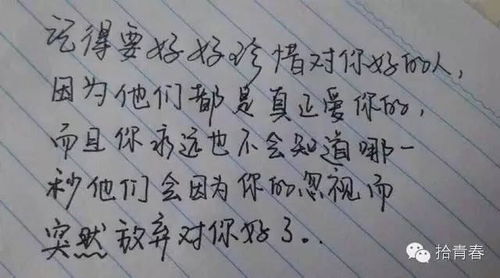 记得要好好珍惜对你好的人，
因为他们都是真正爱你的，
而且你永远也不会知道哪一
秒他们会因为你的忽视而
突然放弃对你好了..
拾青春